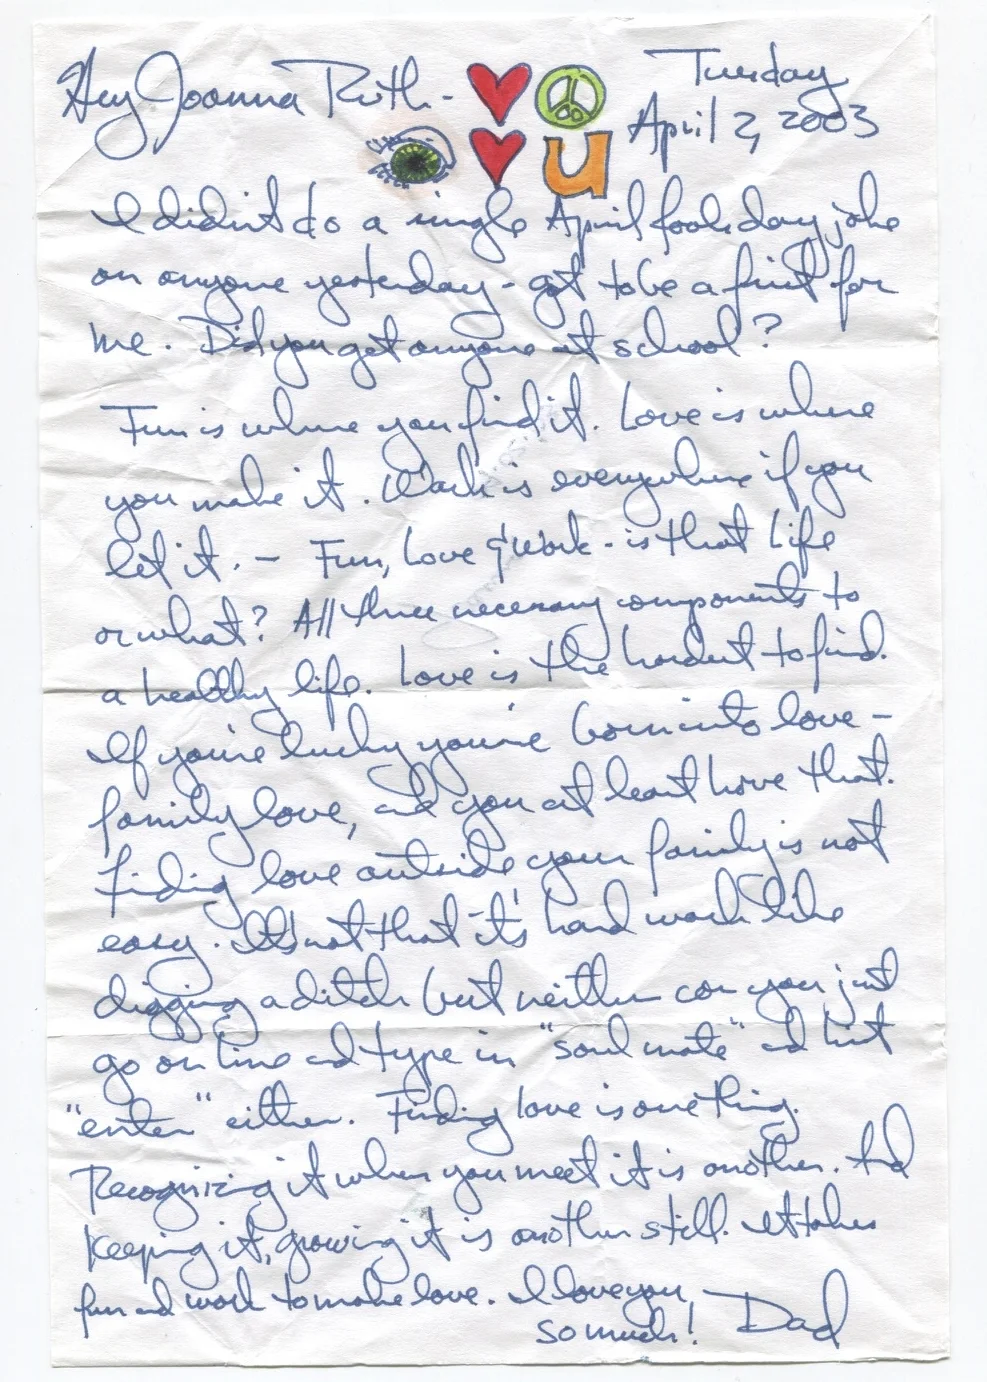 Hey Joanna Ruth - Tuesday
April 2, 2003
u
I didn't do a single April fools day joke
on anyone yesterday - got to be a first for
me. Did you get anyone at school?
Fun is where you find it. Love is where
you make it. Work is everywhere if you
let it. - Fun, Love & Work - is that Life
or what? All three necessary components to
a healthy life. Love is the hardest to find.
If you're lucky you're born into love -
family love, and you at least have that.
Finding love outside your family is not
easy. It's not that it's hard work like
digging a ditch but neither can you just
go on line and type in "soul mate" and hit
"enter" either. Finding love is one thing.
Recognizing it when you meet it is another. And
keeping it, growing it is another still. It takes
fun and work to make love. I love you
so much! Dad